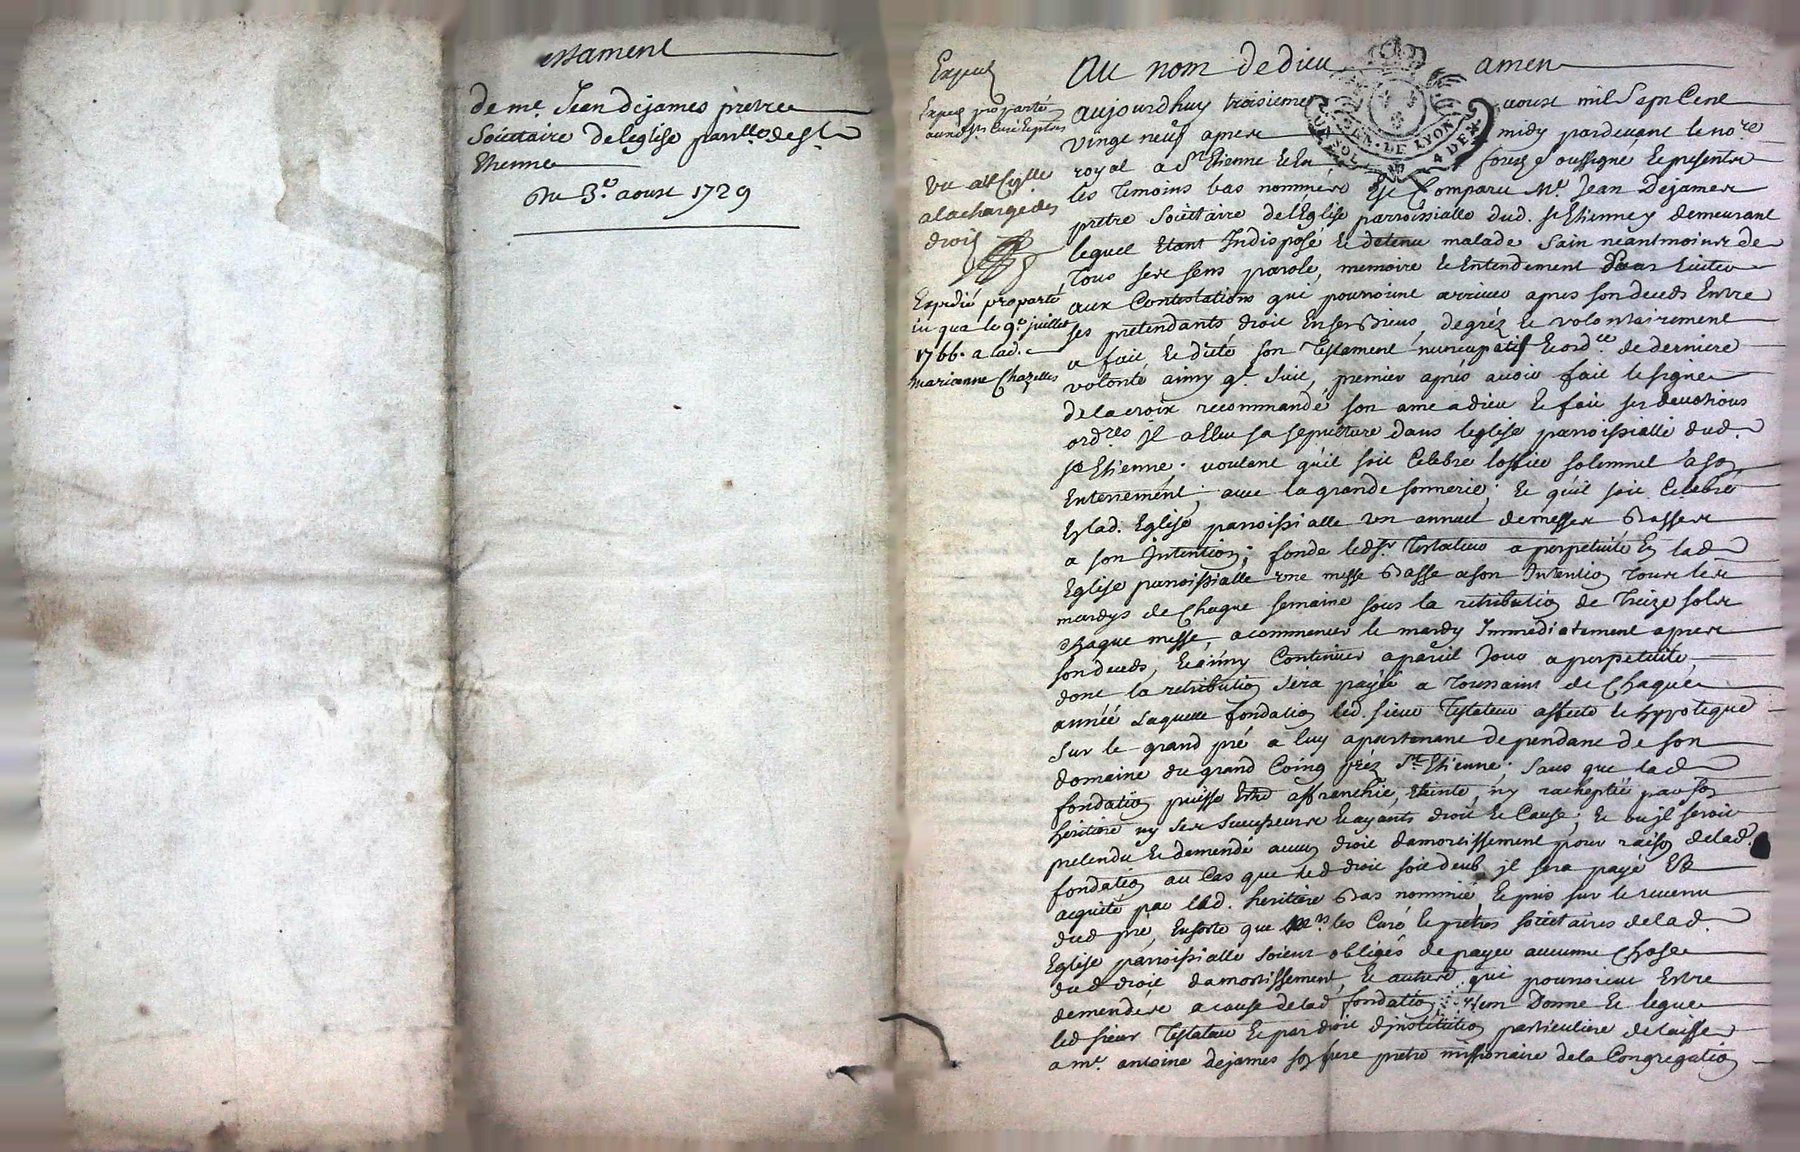 estament
de me. Jean dejames prêtre
Societtaire de leglise parlle. de St.
Etienne
Du 3e. aoust 1729
Expedi
Expedi pro parté
Vu au Cytle
a la charge des
droit
Expedié pro parté
jusqua le 9e juillet
1766. a lad.
marianne Chazelles
Au nom de dieu amen
aujourdhuy troisieme aoust mil Sept Cent
vingt neuf apres midy pardevant le nore
royal a St. Etienne et En forest soussigné, et presents
les Temoins bas nommés est Comparu Me. Jean Dejames
pretre Societtaire de l'Eglise parroissialle dud. St Etienne y demeurant
lequel Etant Indisposé et detenu malade Sain neantmoins de
Tous ses sens parole, memoire et Entendement pour Eviter
aux Contestations qui pourroient arriver apres son deceds Entre
ses pretendants droit En ses Biens, degréz et volontairement
a fait et dicté son Testament nuncupatif et ordce. de derniere
volonté ainsy q. suit, premier aprés avoir fait le signe
de la croix recommandé son ame a dieu et fait ses devotions
ordres jl a Elleu sa sepulture dans leglise parroissialle dud.
St Etienne. voulant qu'il soit Celebré loffice solemnel a son
Enterrement; avec la grande sonnerie; et qu'il soit Celebré
En lad. Eglise parroissialle un annuel de messes Basses
a son Intention; fonde led. Sr. Testateur a perpetuité En lad.
Eglise parroissialle une messe Basse a son Intention tous les
mardys de Chaque semaine sous la retribution de Treize sols
chaque messe, a commencer le mardy Immediatement apres
son deceds, et ainsy Continuer a pareil Jour a perpetuité,
dont la retribution sera payée a Toussaint de Chaque
année Laquelle fondation led. sieur Testateur affecte et hypoteque
sur le grand pré a luy apartenant dependant de son
domaine du grand Coing prez St. Etienne; sans que lad.
fondation puisse Etre affrenchie, Eteinte, ny rachepteé par son
heritiere ny ses successeurs et ayants droit et Cause; et ou jl seroit
pretendu et demendé aucun droit damortissement pour raison de lad.
fondation au Cas que led. droit soit deub jl sera payé Et
acquité par lad. heritiere Bas nommée, et pris sur le revenu
dud. pré, Ensorte que Mrs. les Curé et pretres societtaires de lad.
Eglise parroissialle soient obligés de payer aucunne Chose
dud. droit damortissement, et autres qui pourroient Estre
demendés a cause de lad. fondation. Item Donne et legue
led. sieur Testateur et par droit d'institution particuliere delaisse
a me. antoine dejames son frere pretre missionaire de la Congregation